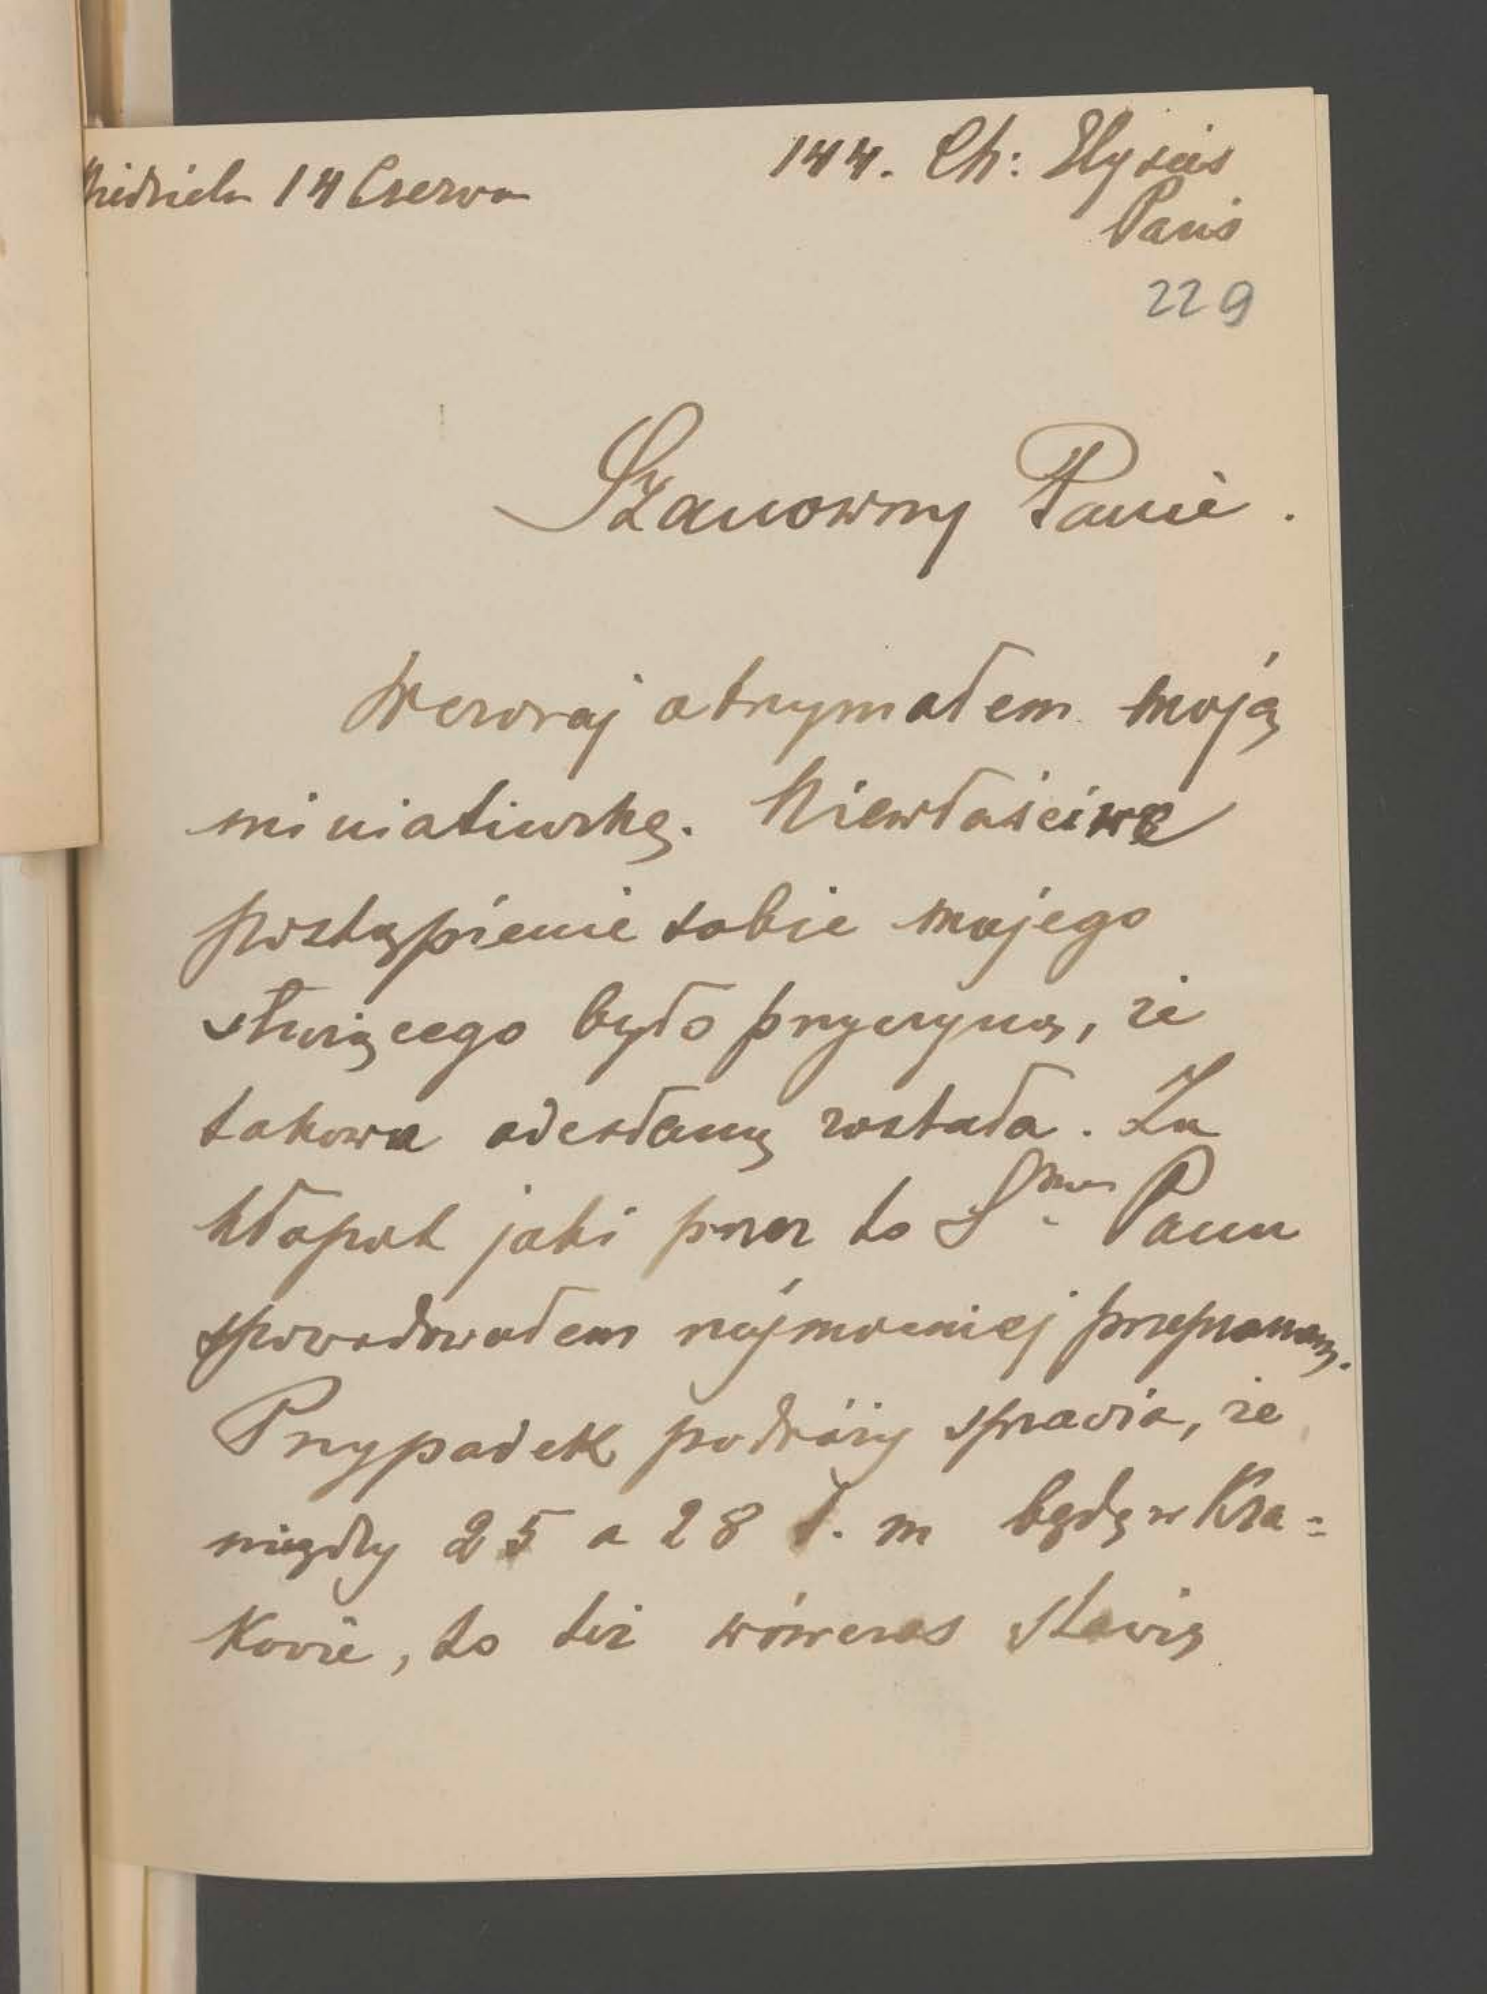 Niedziela 14 Czerwca
144. Ch: Elysées
Paris
229
Szanowny Panie.
Wczoraj otrzymałem moją
miniaturkę. Niewłaściwe
postąpienie sobie mojego
służącego było przyczyną, że
takowa odesłaną została. Za
kłopot jaki przez to Sznu Panu
spowodowałem najmocniej przepraszam.
Przypadek podróży sprawia, że
między 25 a 28 b. m będę w Kra=
kowie, to też wówczas stawię